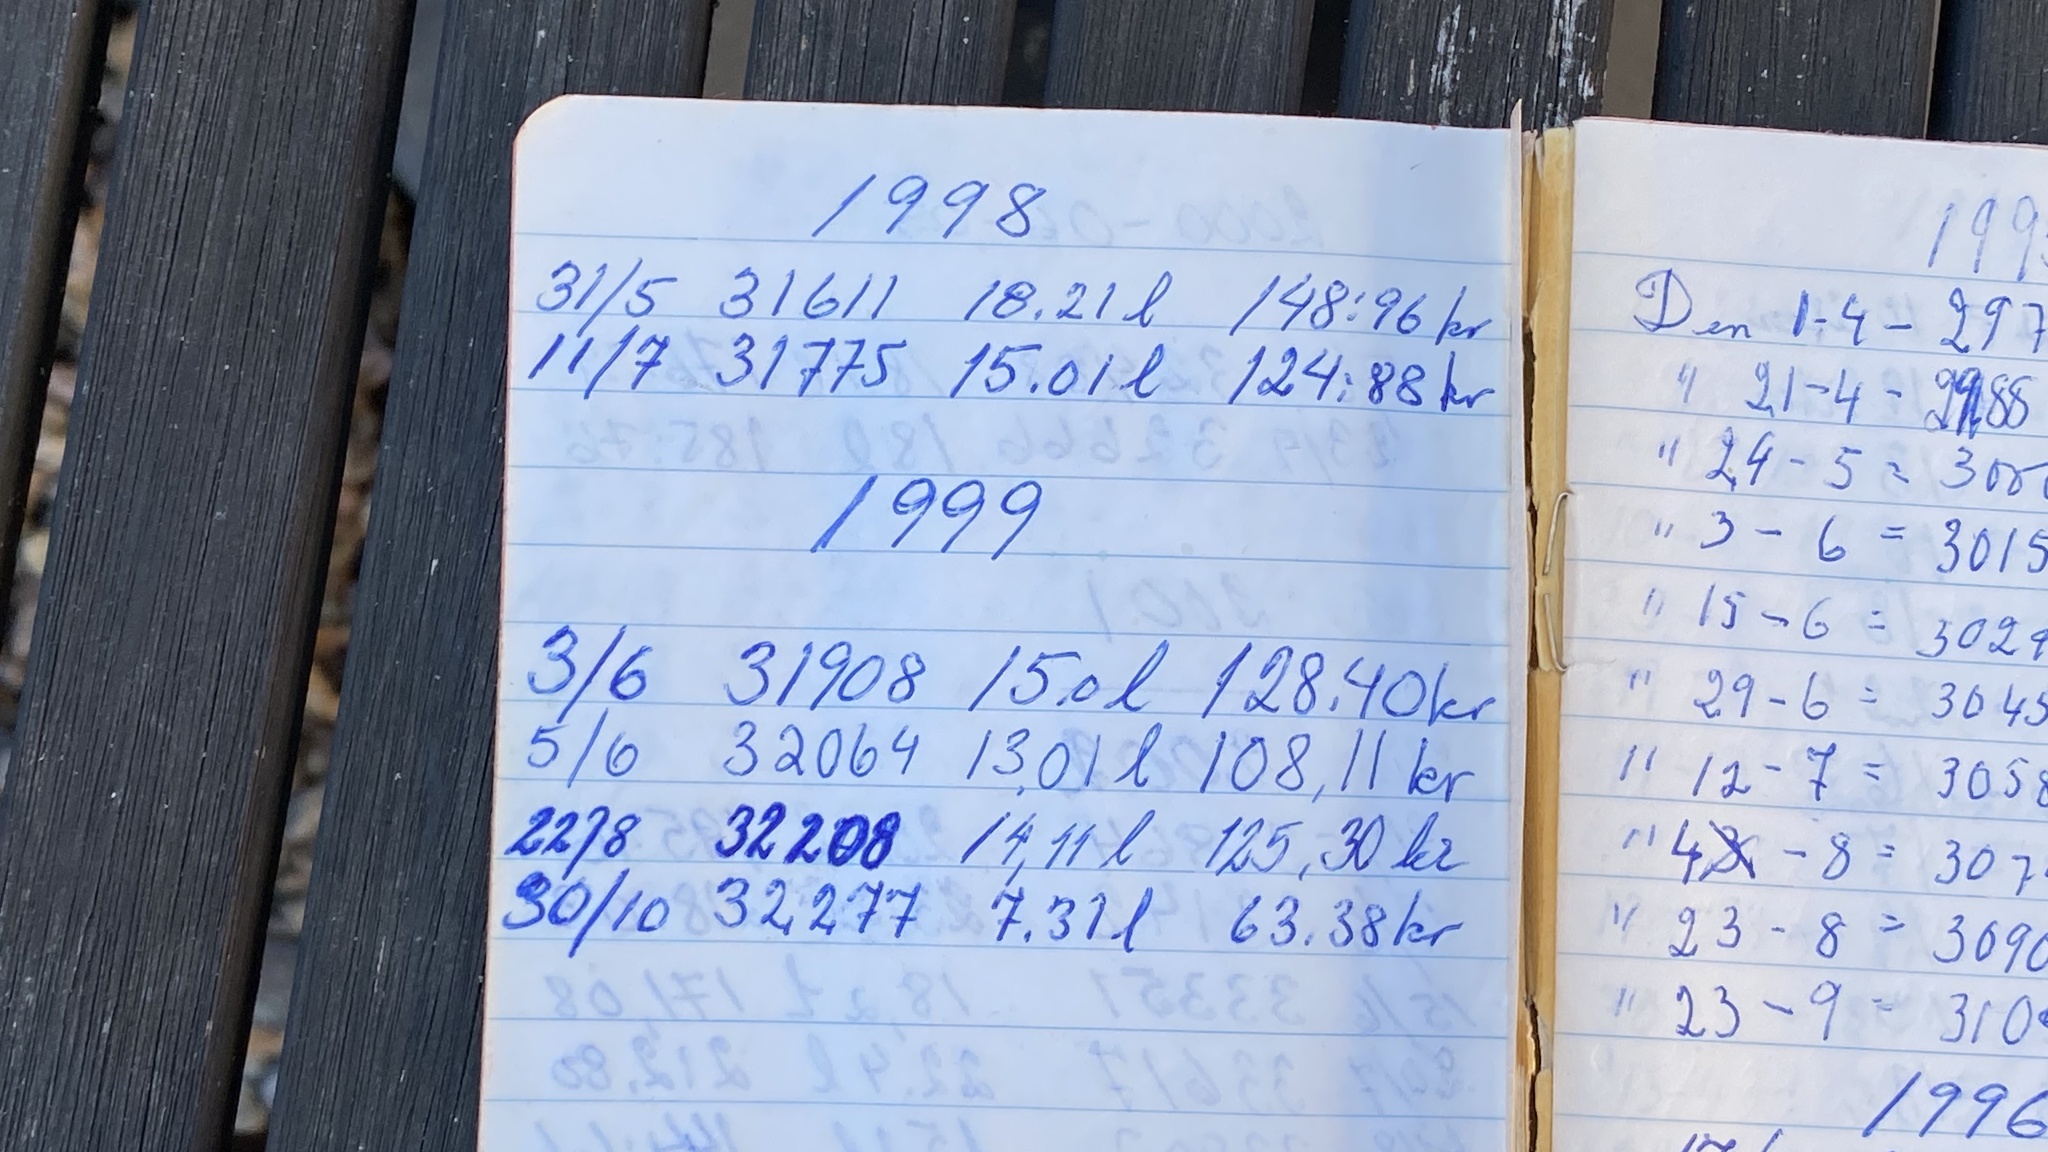 1998
31/5 31611 18.21 l 148:96 kr
11/7 31775 15.01 l 124:88 kr
1999
3/6 31908 15.0 l 128.40 kr
5/6 32064 13,01 l 108,11 kr
22/8 32208 14,11 l 125,30 kr
30/10 32277 7.31 l 63.38 kr
199
Den 1-4 - 297
" 21-4 -
" 24 - 5 = 300
" 3 - 6 = 3015
" 15 - 6 = 3029
" 29 - 6 = 3045
" 12 - 7 = 3058
" 4 - 8 = 307
" 23 - 8 = 3090
" 23 - 9 = 310
1996